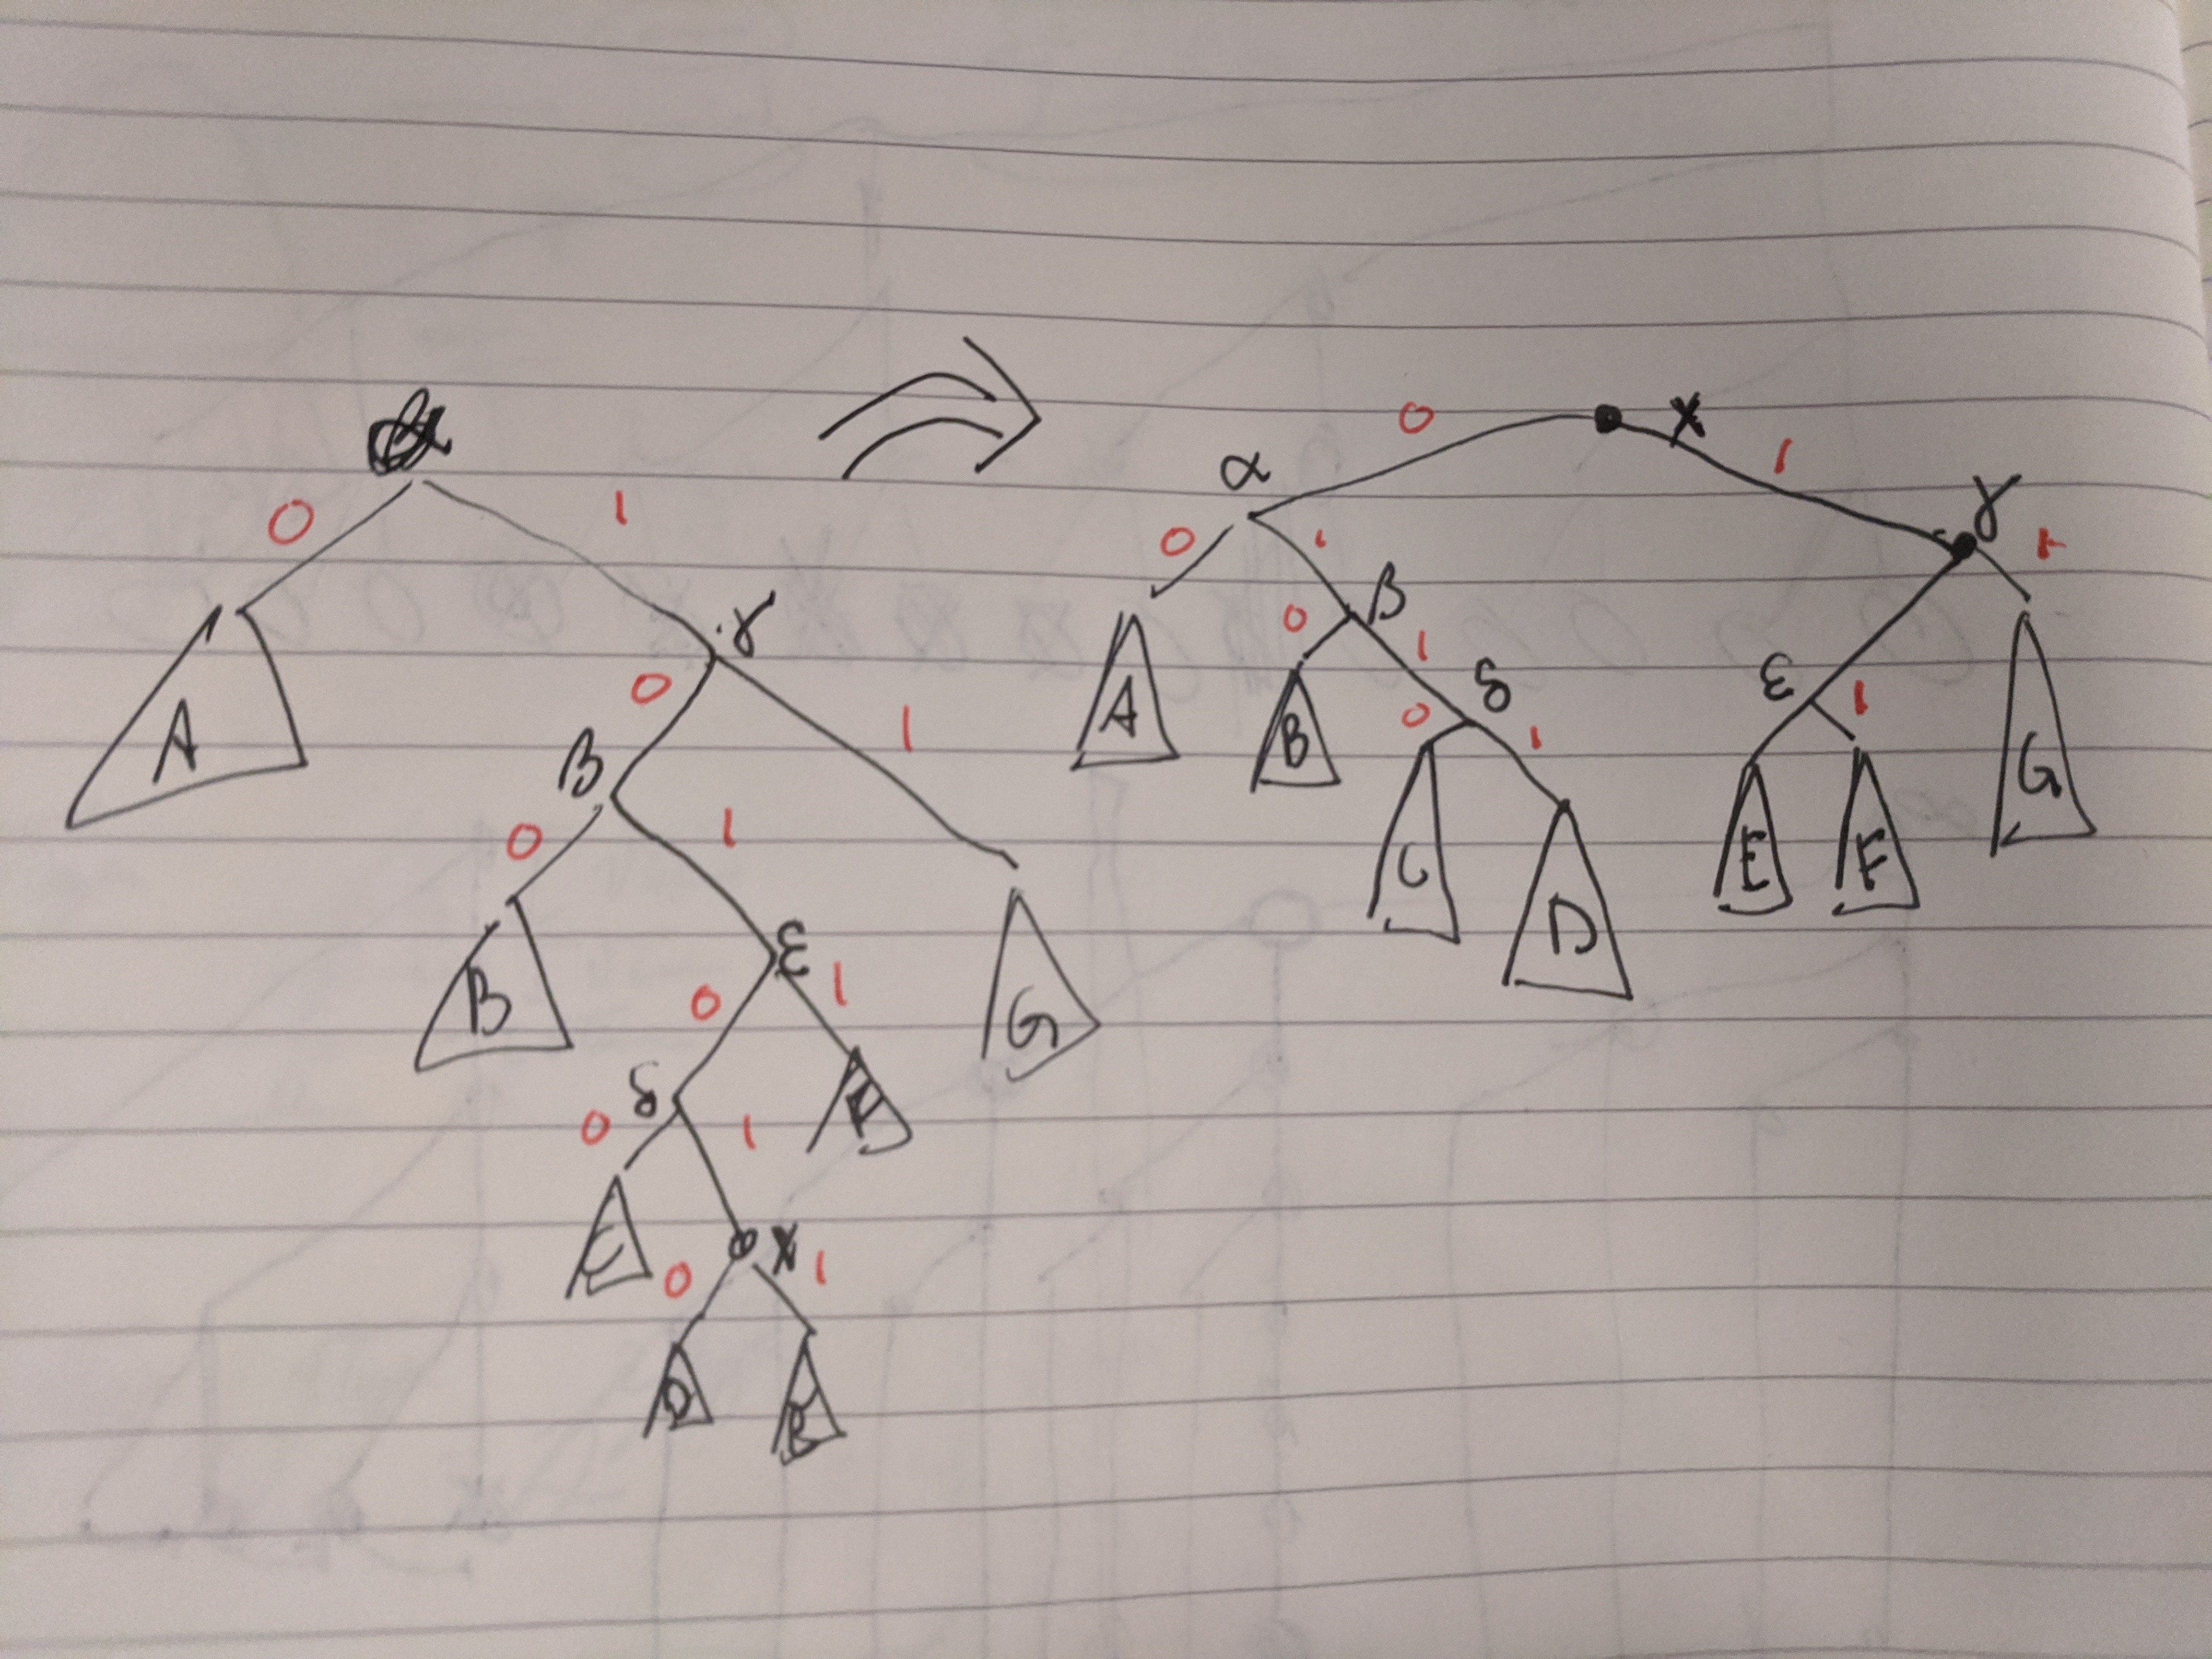 α
0 1
A
γ
0 1
β
0 1
B
ε
0 1
G
δ
0 1
F
C
x
0 1
D
0 x 1
α γ
0 1 1
A
β
0 1
B
δ
0 1
ε
1
C
D
E
F
G